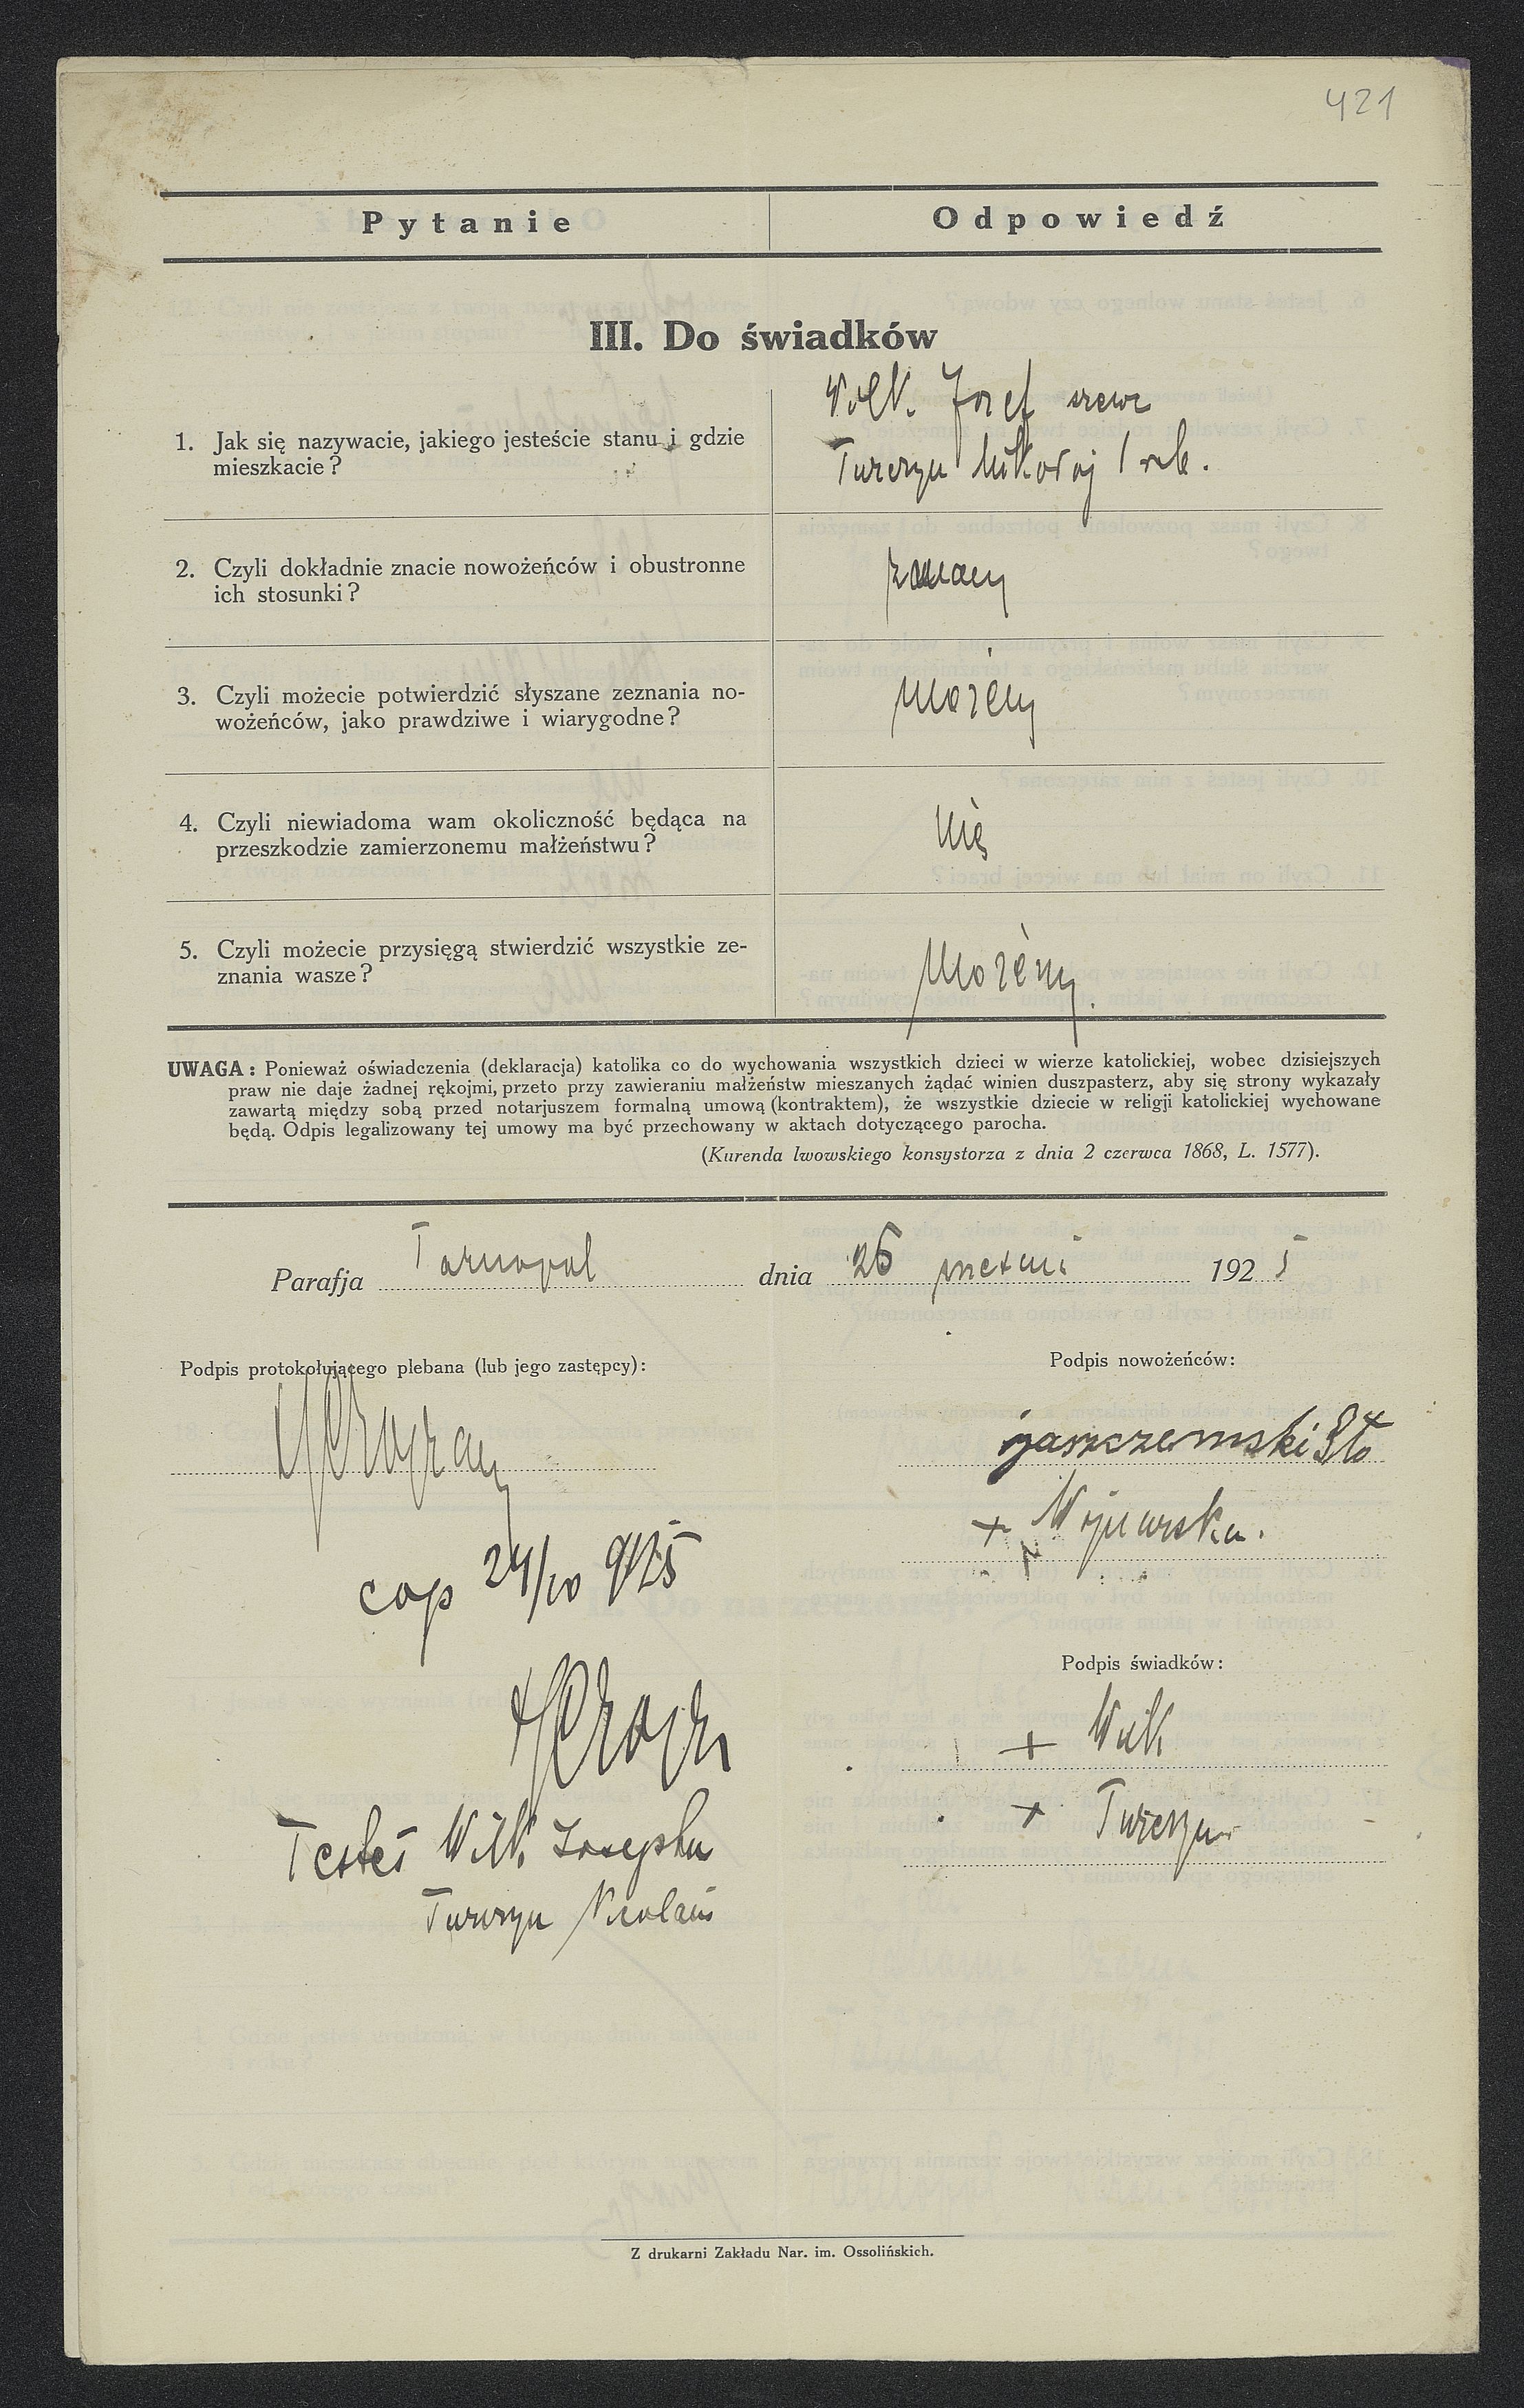 421
Pytanie
Odpowiedź
III. Do świadków
1. Jak się nazywacie, jakiego jesteście stanu i gdzie
mieszkacie?
Wilk Józef szewc
Turczyn Mikołaj
2. Czyli dokładnie znacie nowożeńców i obustronne
ich stosunki?
znamy
3. Czyli możecie potwierdzić słyszane zeznania no-
wożeńców, jako prawdziwe i wiarygodne?
możemy
4. Czyli niewiadoma wam okoliczność będąca na
przeszkodzie zamierzonemu małżeństwu?
Nie
5. Czyli możecie przysięgą stwierdzić wszystkie ze-
znania wasze?
Możemy.
UWAGA: Ponieważ oświadczenia (deklaracja) katolika co do wychowania wszystkich dzieci w wierze katolickiej, wobec dzisiejszych
praw nie daje żadnej rękojmi, przeto przy zawieraniu małżeństw mieszanych żądać winien duszpasterz, aby się strony wykazały
zawartą między sobą przed notarjuszem formalną umową (kontraktem), że wszystkie dziecie w religji katolickiej wychowane
będą. Odpis legalizowany tej umowy ma być przechowany w aktach dotyczącego parocha.
(Kurenda lwowskiego konsystorza z dnia 2 czerwca 1868, L. 1577).
Parafja Tarnopol dnia 26 wrześni 1925
Podpis protokołującego plebana (lub jego zastępcy):
Podpis nowożeńców:
jaszczemski
+ Wijuwska.
cop 24/10 925
Podpis świadków:
+ Wilk
+ Turczyn
Testes Wilk Josephus
Turczyn Nicolaus
Z drukarni Zakładu Nar. im. Ossolińskich.